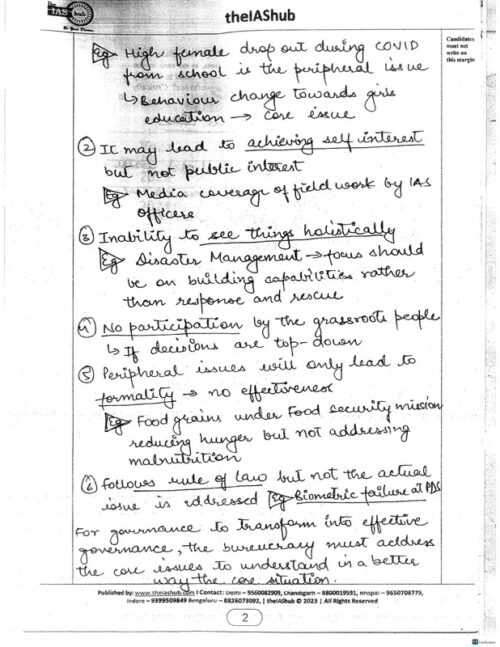 the
IAS hub
theIAShub
Candidates
must not
write on
this margin
Eg High female drop out during COVID
from school is the peripheral issue
↳ Behaviour change towards girls
education → core issue
② It may lead to achieving self interest
but not public interest
Eg Media coverage of field work by IAS
officers
③ Inability to see things holistically
Eg Disaster Management → focus should
be on building capabilities rather
than response and rescue
④ No participation by the grassroots people
↳ If decisions are top-down
⑤ Peripheral issues will only lead to
formality → no effectiveness
Eg Food grains under Food security mission
reducing hunger but not addressing
malnutrition
⑥ Follows rule of law but not the actual
issue is addressed Eg Biometric failure at PDS
For governance to transform into effective
governance, the bureucracy must address
the core issues to understand in a better
way the core situation.
Published by: www.theiashub.com I Contact: Delhi – 9560082909, Chandigarh – 8800019591, Bhopal – 9650708779,
Indore – 9399509849 Bengaluru – 8826073092, | theIAShub © 2023 | All Rights Reserved
2